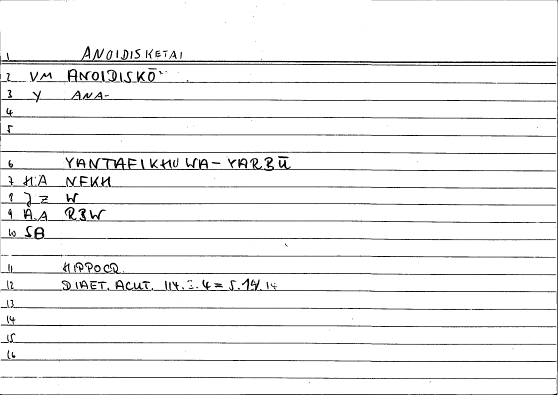 1 ANOIDISKETAI
2 VM ANOIDISKŌ
3 Y ANA-
4
5
6 YANTAFIKHU WA-YARBŪ
7 H:A NFKH
8 W
9 A.A RBW
10 SB
11 HIPPOCR.
12 DIAET. ACUT. 114. 4 = 5.14. 14
13
14
15
16